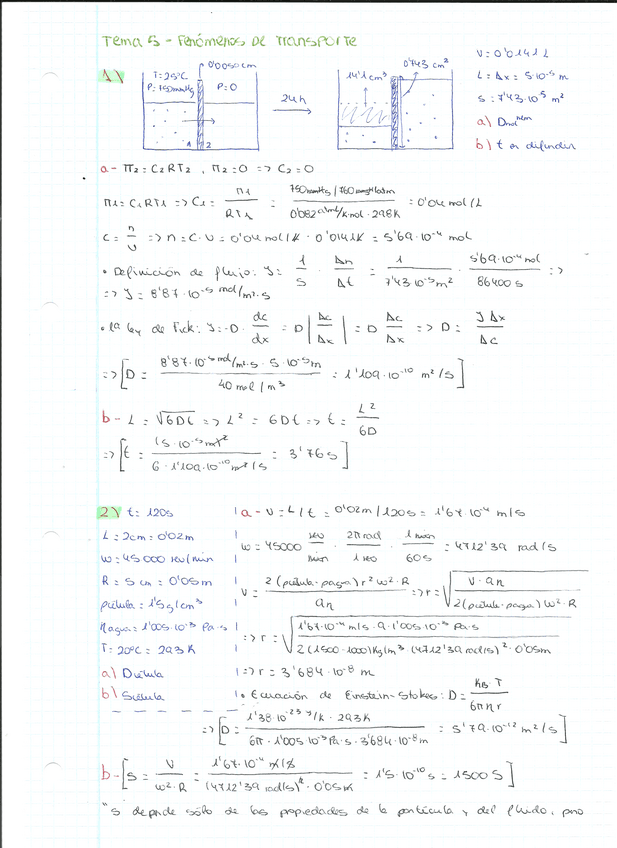 Tema 5 - Fenómenos de Transporte
1)
T=25ºC
P=750mmHg
P=0
0'0050 cm
1 2
24h
14'1 cm³
0'743 cm²
V=0'0141 L
L=Δx=5·10⁻⁵ m
S=7'43·10⁻⁵ m²
a)
b) t en difundir
a- π₂=C₂RT₂, π₂=0 => C₂=0
π₁=C₁RT₁ => C₁= π₁/RT₁ = (750mmHg/760 mmHg/atm)/(0'082 atm·L/K·mol·298K) = 0'04 mol/L
C= n/V => n=C·V=0'04 mol/L·0'0141L=5'69·10⁻⁴ mol
• Definición de flujo: J= 1/S · Δn/Δt = 1/(7'43·10⁻⁵m²) · 5'69·10⁻⁴ mol/86400 s =>
=> J=8'87·10⁻⁵ mol/m²·s
• 1a ley de Fick: J=-D· dc/dx = D|Δc/Δx| = D Δc/Δx => D= JΔx/Δc
=> [D= (8'87·10⁻⁵ mol/m²·s·5·10⁻⁵m)/(40 mol/m³) = 1'109·10⁻¹⁰ m²/s]
b- L=√6Dt => L²=6Dt => t= L²/6D
=> [t= (5·10⁻⁵m)²/(6·1'109·10⁻¹⁰m²/s) = 3'76s]
2) t=120s
L=2cm=0'02m
w=45000 rev/min
R=5cm=0'05m
ρcélula=1'5g/cm³
ηagua=1'005·10⁻³ Pa·s
T=20ºC=293K
a) Dcélula
b) Scélula
a- v=L/t=0'02m/120s=1'67·10⁻⁴ m/s
w=45000 rev/min · 2π rad/1 rev · 1 min/60s = 4712'39 rad/s
v= 2(ρcélula-ρagua)r²w²·R/9η => r=√(v·9η/2(ρcélula-ρagua)w²·R)
=> r=√(1'67·10⁻⁴m/s·9·1'005·10⁻³Pa·s/2(1500-1000)Kg/m³·(4712'39 rad/s)²·0'05m)
=> r=3'684·10⁻⁸ m
• Ecuación de Einstein-Stokes: D= KB·T/6πηr
=> [D= (1'38·10⁻²³ J/K·293K)/(6π·1'005·10⁻³Pa·s·3'684·10⁻⁸m) = 5'79·10⁻¹² m²/s]
b- [S= v/w²·R = 1'67·10⁻⁴ m/s/(4712'39 rad/s)²·0'05m = 1'5·10⁻¹⁰s=1500 S]
"S depende sólo de las propiedades de la partícula y del fluido, pero